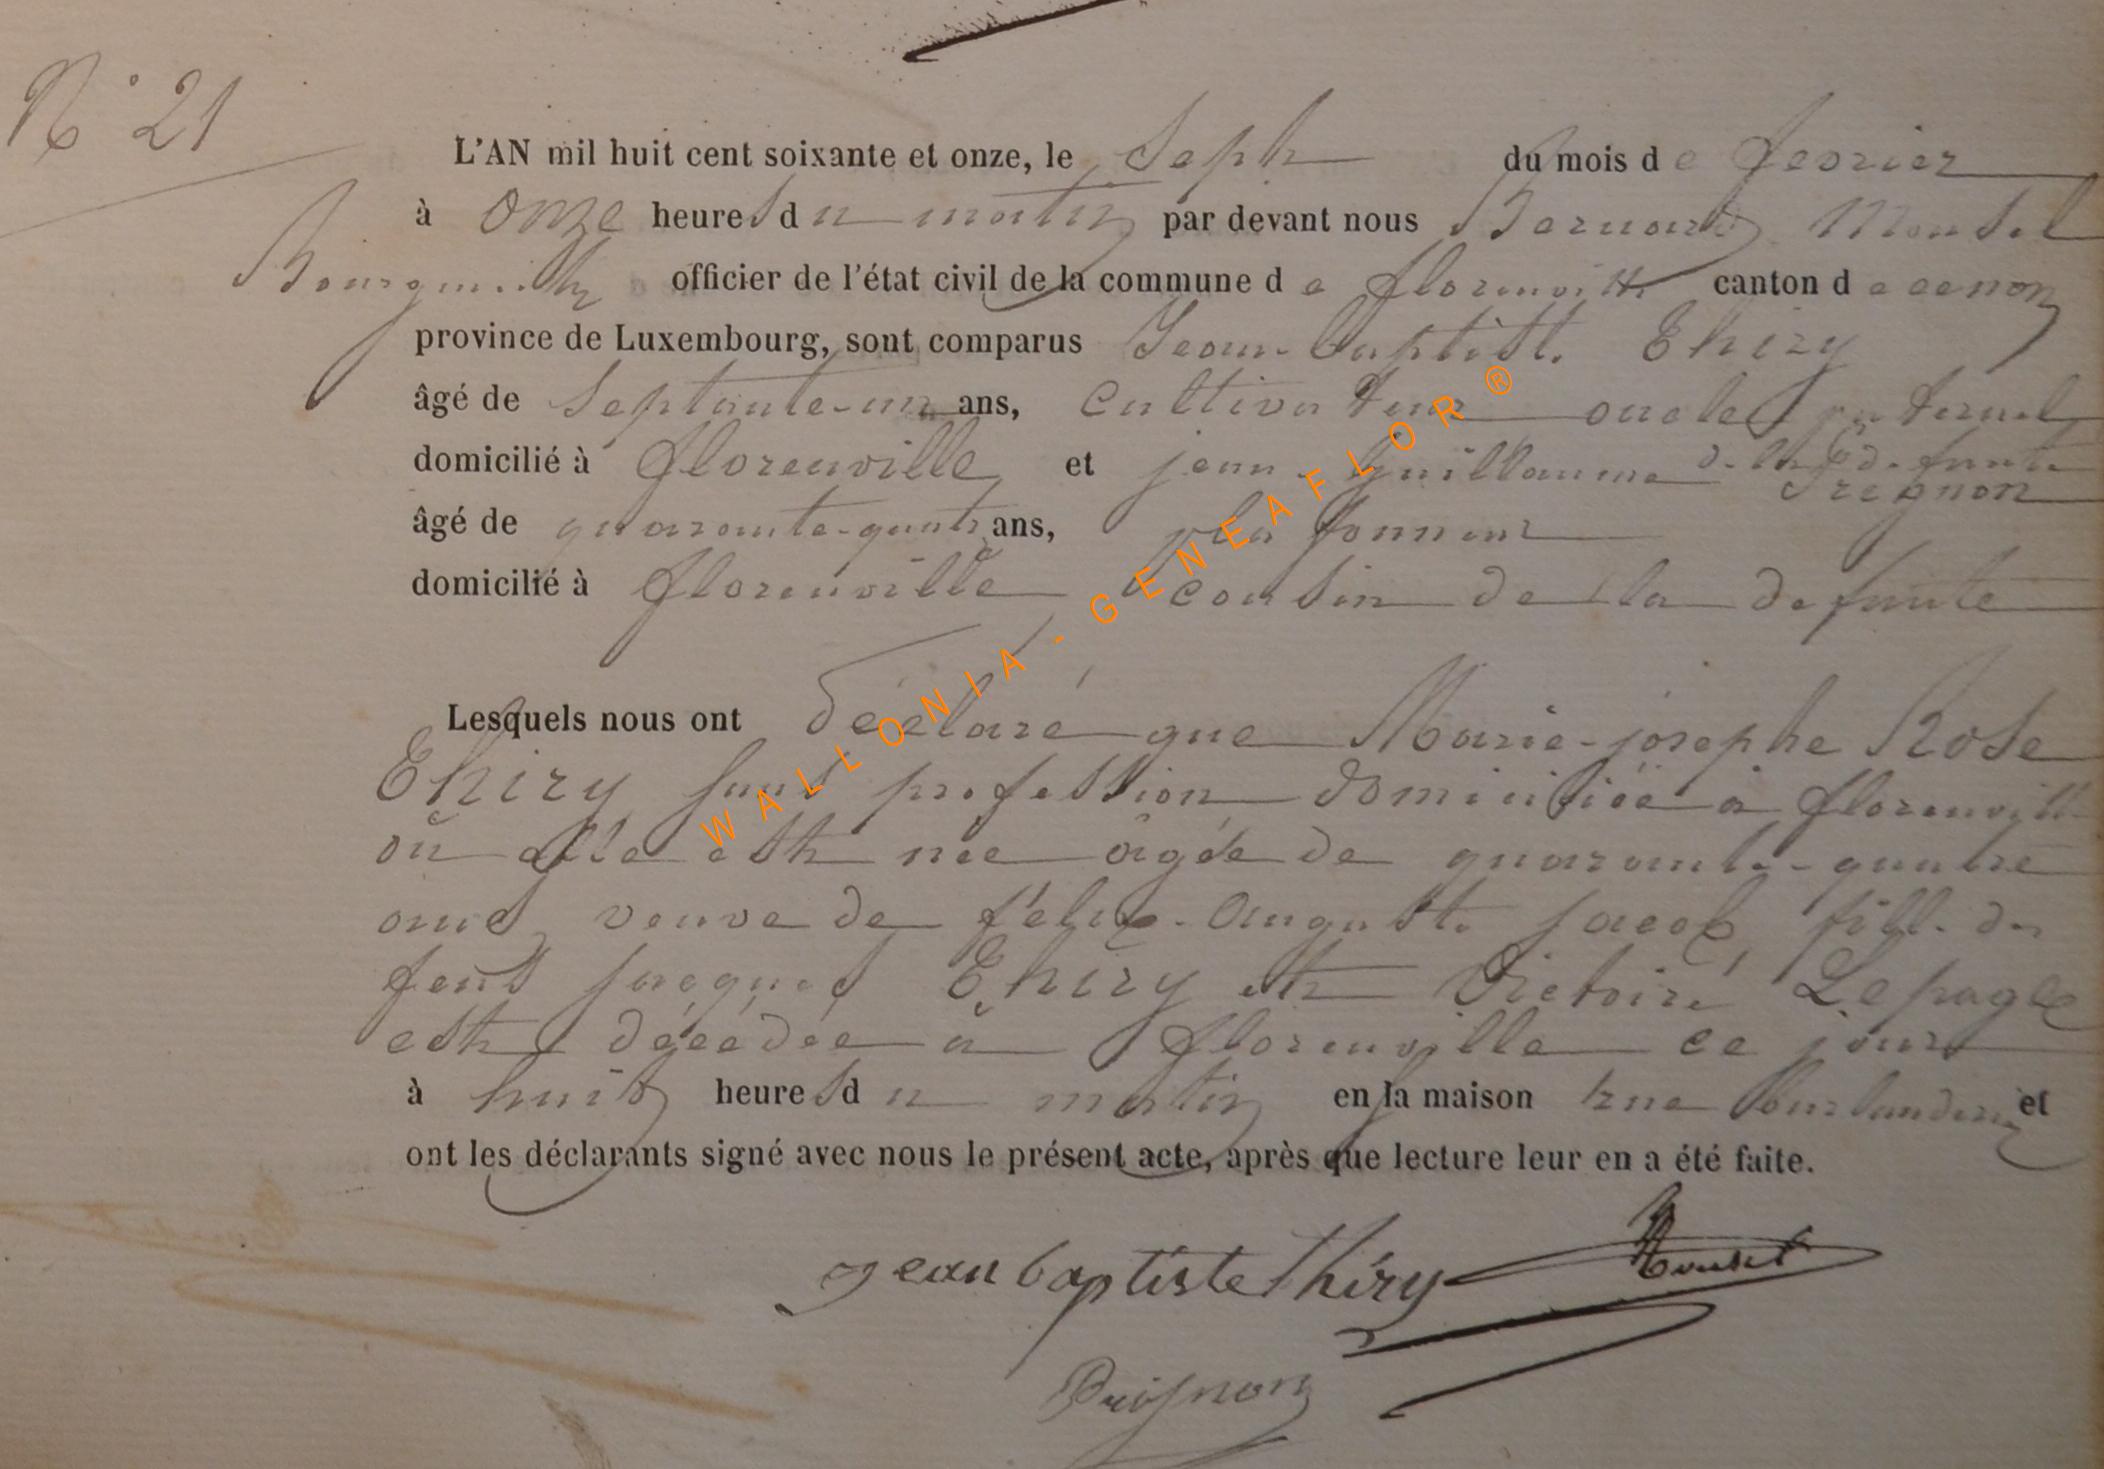 N° 21
L'AN mil huit cent soixante et onze, le Sept du mois de fevrier
à onze heures du matin par devant nous Bernard Mousel
Bourgmestre officier de l'état civil de la commune de florenville canton de
province de Luxembourg, sont comparus Jean-Baptiste Thiry
âgé de Septante-un ans, Cultivateur oncle paternel
de la défunte
domicilié à florenville et jean-Guillaume Preignon
âgé de quarante-quatre ans, plafonneur
domicilié à florenville cousin de la defunte
Lesquels nous ont déclaré que Marie-josephe Rose
Thiry sans profession domiciliée à florenville
où elle est née âgée de quarante-quatre
ans, veuve de félix-Auguste jacob, fille de
feus jacques Thiry et Victoire Lepage
est décédée à florenville ce jour
à huit heures du matin en la maison rue et
ont les déclarants signé avec nous le présent acte, après que lecture leur en a été faite.
jean baptiste thiry Mousel
Preignon
WALLONIA - GENEAFLOR ®